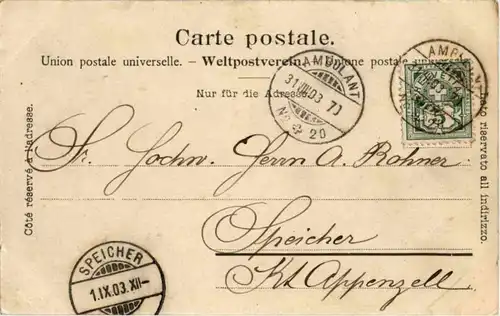 Carte postale.
Union postale universelle. – Weltpostverein. – Unione postale universale
Nur für die Adresse.
AMBULANT
31.VIII.03. 7)
No. 20
AMBULANT
Côté réservé à l'adresse.
Lato riservato all indirizzo.
Sr. Hochw. Herrn A. Rohner
Speicher
Kt. Appenzell.
SPEICHER
1.IX.03.XII–